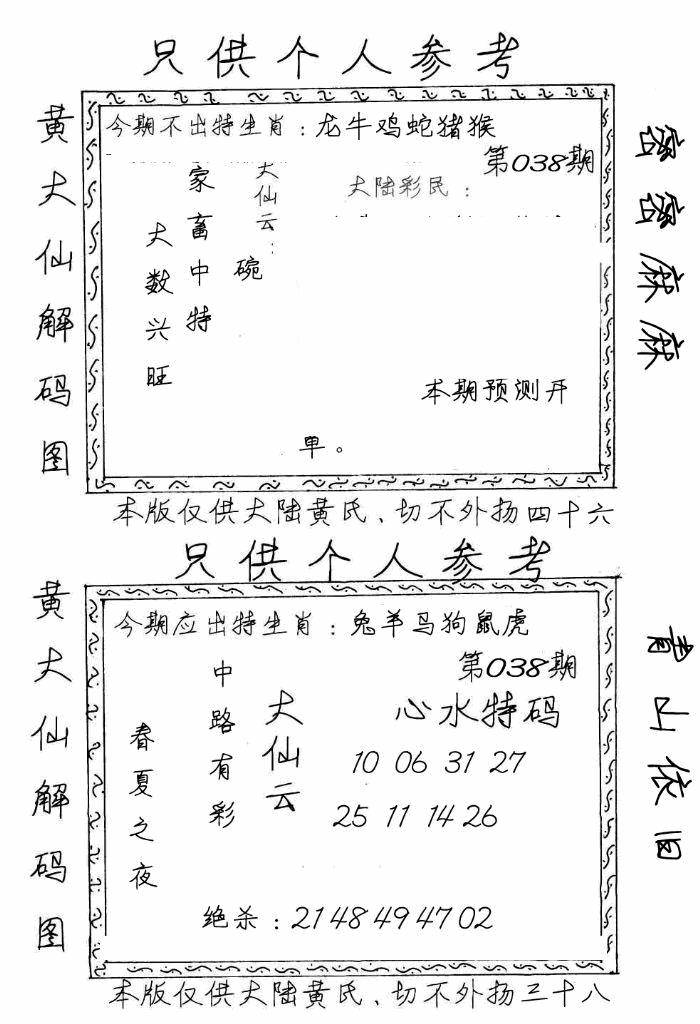 只供个人参考
黄大仙解码图
今期不出特生肖：龙牛鸡蛇猪猴
第038期
大陆彩民：
大仙云：
家畜中特
碗
大数兴旺
本期预测开
单。
密密麻麻
本版仅供大陆黄氏、切不外扬四十六
只供个人参考
黄大仙解码图
今期应出特生肖：兔羊马狗鼠虎
第038期
心水特码
大仙云
中路有彩
春夏之夜
10 06 31 27
25 11 14 26
绝杀：21 48 49 47 02
青山依旧
本版仅供大陆黄氏、切不外扬三十八